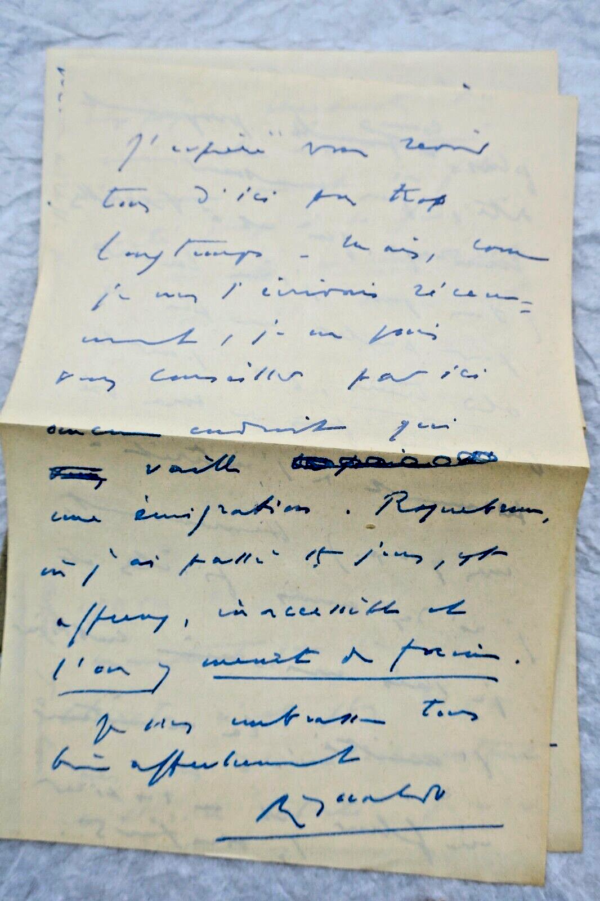 J'espère vous revoir
tous d'ici pas trop
longtemps – mais, comme
je vous l'écrivais récem=
ment, je ne puis
vous conseiller par ici
aucun endroit qui
vaille
une émigration. Roquebrune,
où j'ai passé 15 jours, est
affreux, inaccessible et
l'on y meurt de faim.
Je vous embrasse tous
bien affectueusement
Reynaldo